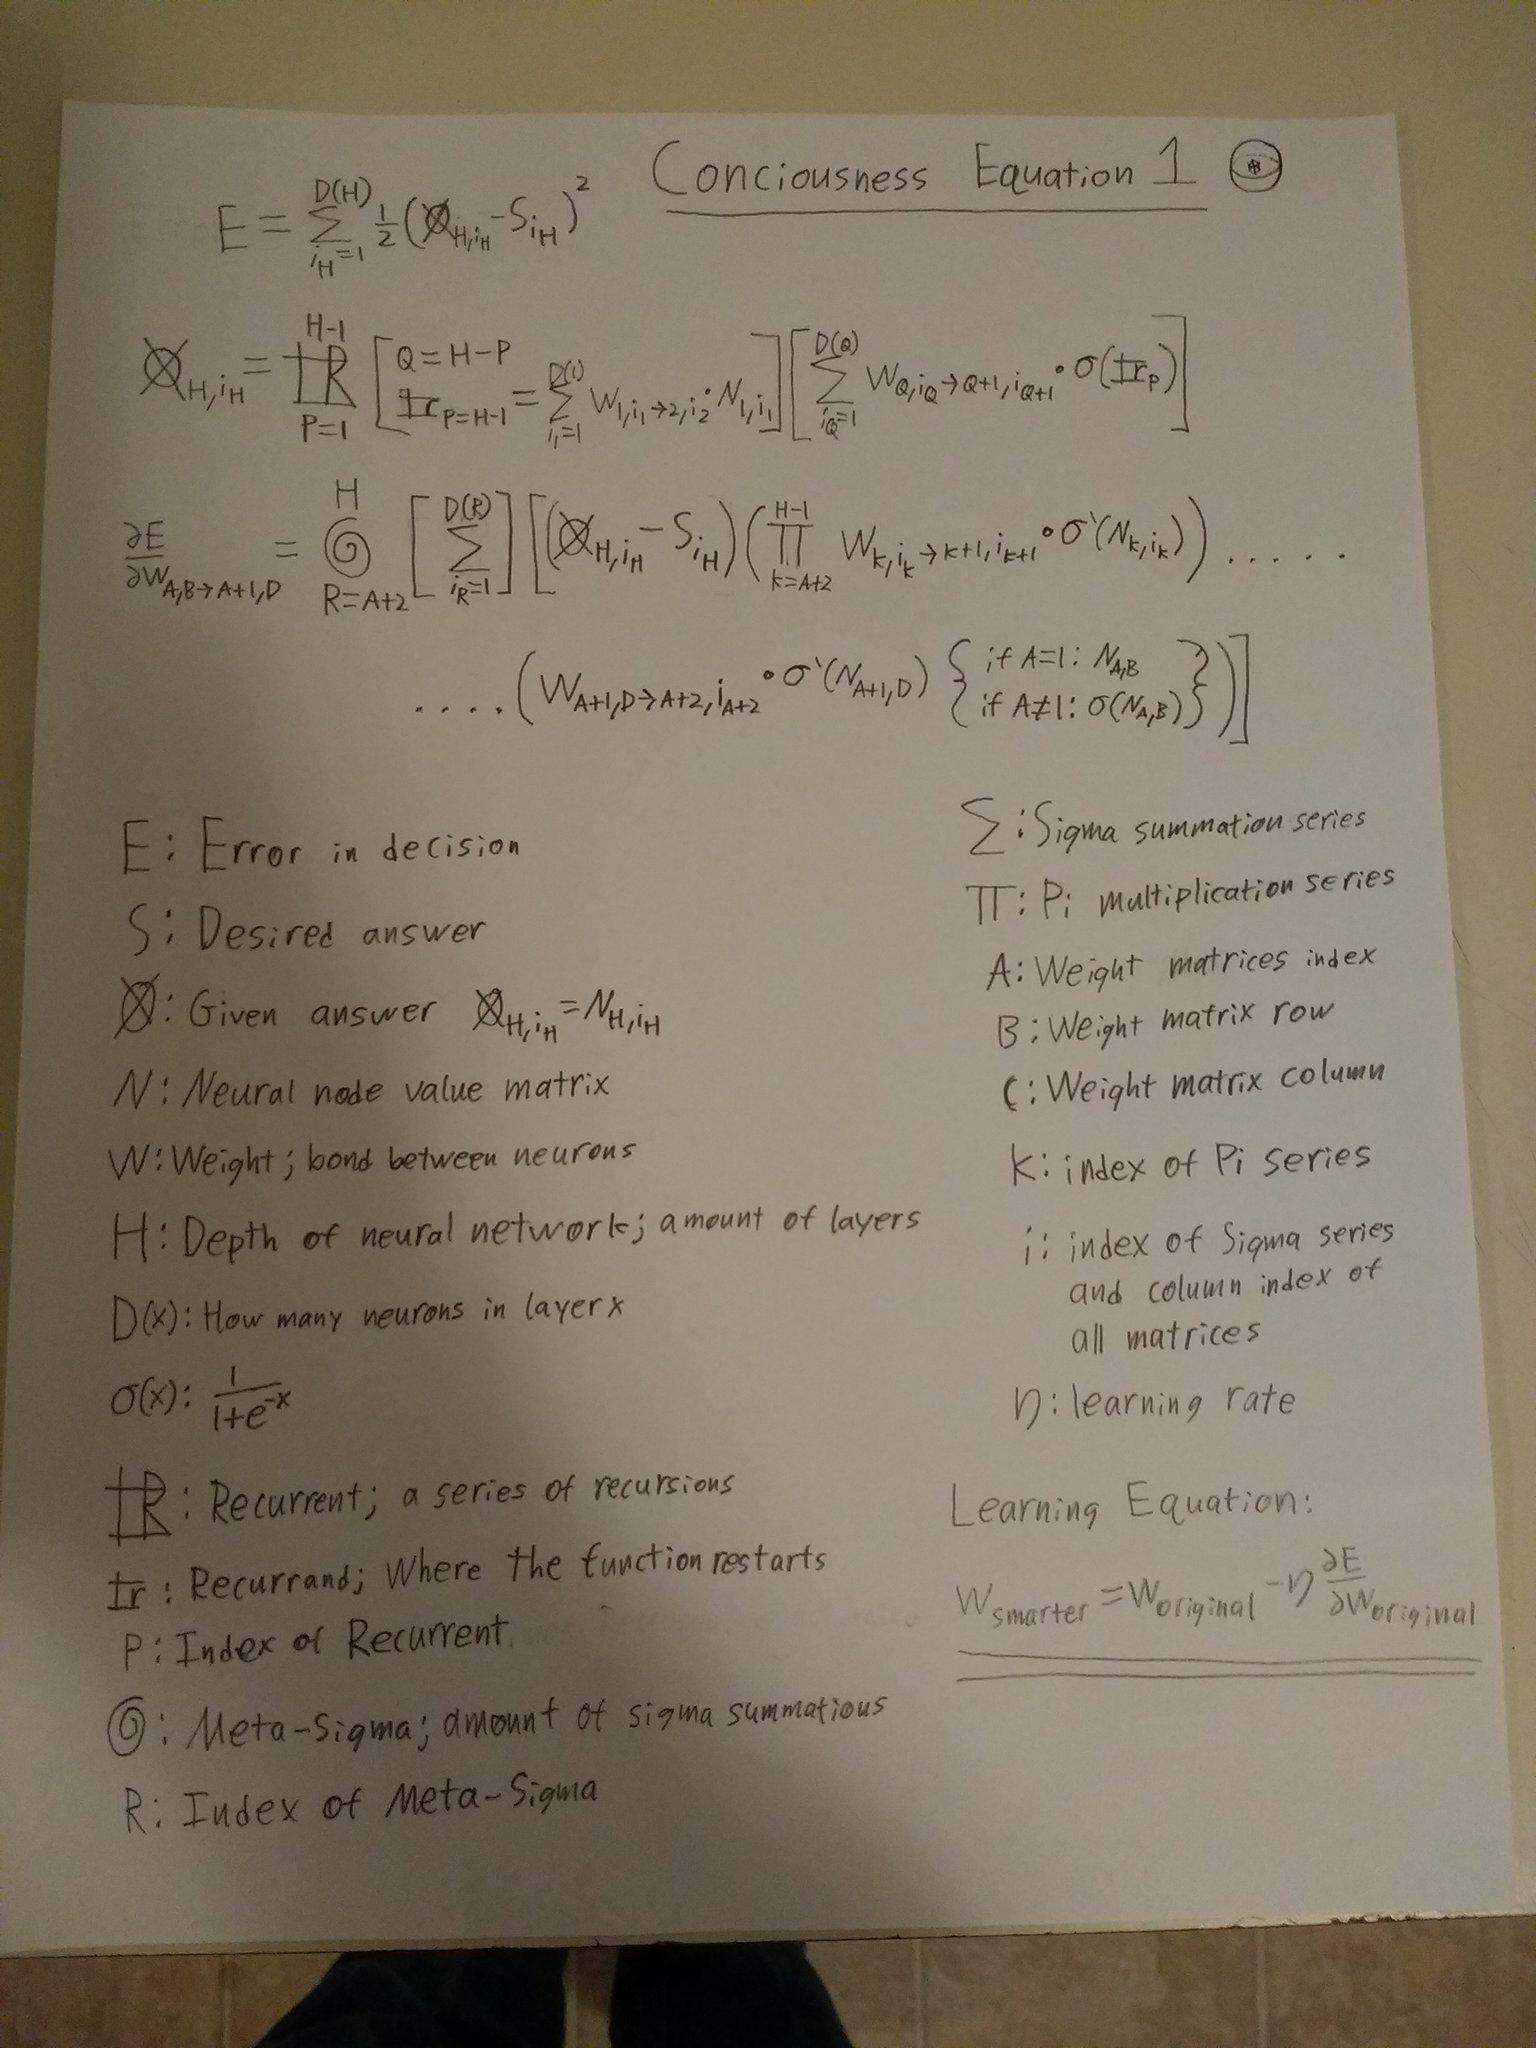 Conciousness Equation 1
E = Σ_{i_H=1}^{D(H)} 1/2 (Ꙭ_{H,i_H} - S_{i_H})^2
Ꙭ_{H,i_H} = R_{P=1}^{H-1} [Q=H-P
Ir_{P=H-1} = Σ_{i_1=1}^{D(1)} W_{1,i_1→2,i_2} • N_{1,i_1}] [Σ_{i_Q=1}^{D(Q)} W_{Q,i_Q→Q+1,i_{Q+1}} • σ(Ir_P)]
∂E/∂W_{A,B→A+1,D} = ◎_{R=A+2}^{H} [Σ_{i_R=1}^{D(R)}] [(Ꙭ_{H,i_H} - S_{i_H}) (Π_{k=A+2}^{H-1} W_{k,i_k→k+1,i_{k+1}} • σ'(N_{k,i_k})) .....
.... (W_{A+1,D→A+2,i_{A+2}} • σ'(N_{A+1,D}) {if A=1: N_{A,B}
if A≠1: σ(N_{A,B})})]
E: Error in decision
S: Desired answer
Ꙭ: Given answer Ꙭ_{H,i_H} = N_{H,i_H}
N: Neural node value matrix
W: Weight; bond between neurons
H: Depth of neural network; amount of layers
D(x): How many neurons in layer x
σ(x): 1/(1+e^{-x})
R: Recurrent; a series of recursions
Ir: Recurrand; Where the function restarts
P: Index of Recurrent
◎: Meta-Sigma; amount of sigma summations
R: Index of Meta-Sigma
Σ: Sigma summation series
Π: Pi multiplication series
A: Weight matrices index
B: Weight matrix row
C: Weight matrix column
K: index of Pi series
i: index of Sigma series
and column index of
all matrices
η: learning rate
Learning Equation:
W_{smarter} = W_{original} - η ∂E/∂W_{original}